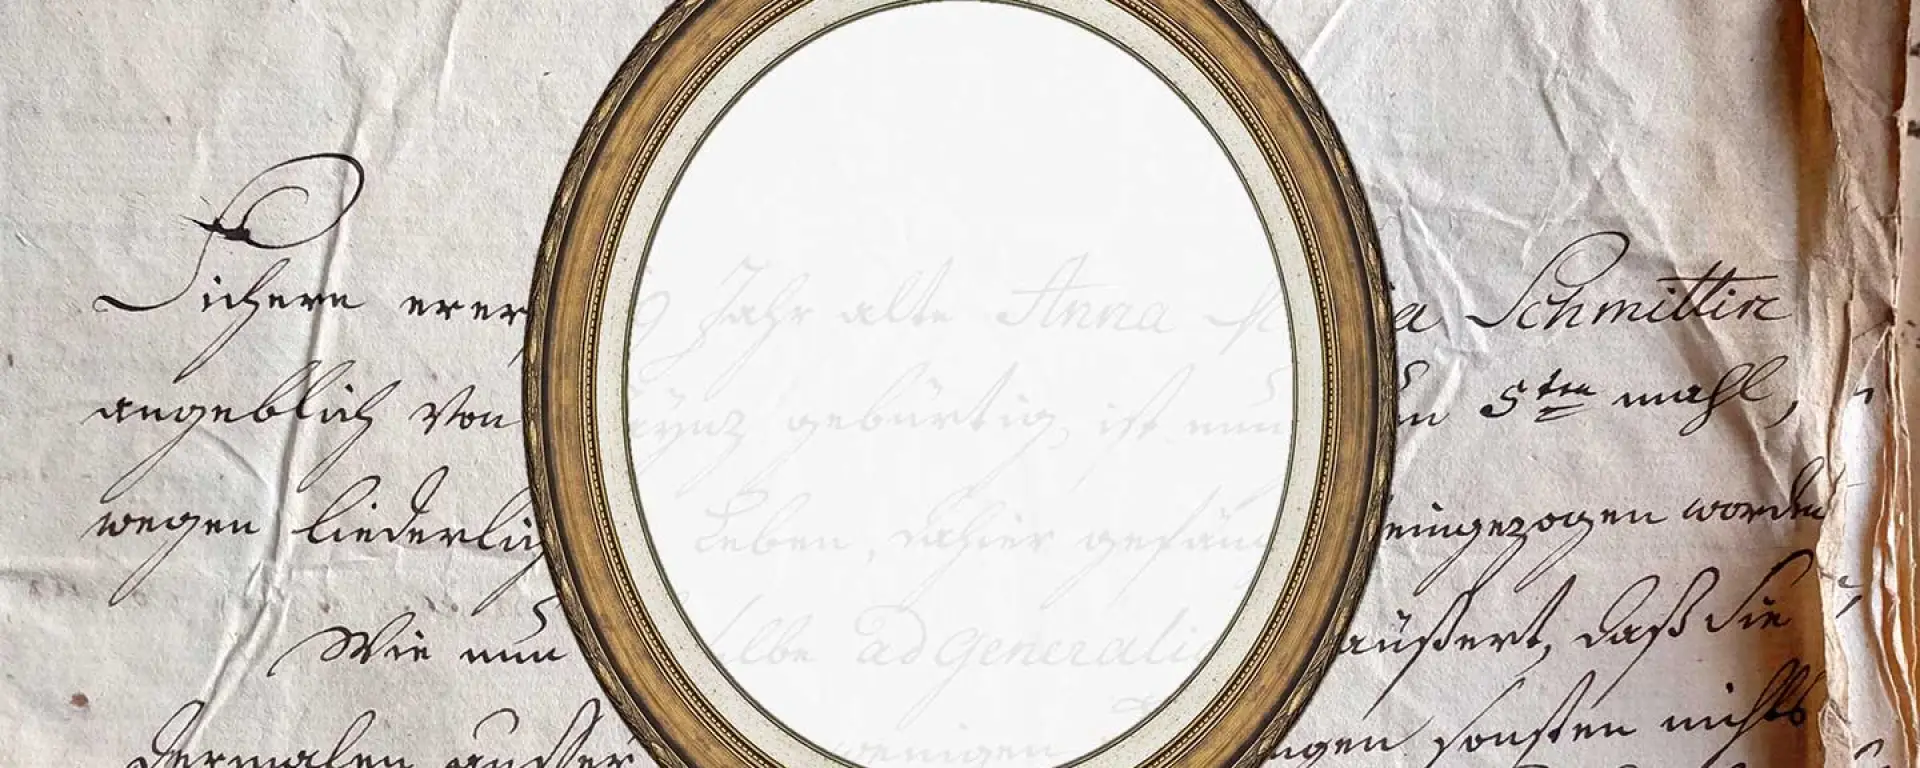 Sichern erer 9 Jahr alte Anna M a Schmittin
angeblich von Maynz gebürtig, ist nun n 5ten mahl,
wegen liederlich Leben, dahier gefäng eingezogen worden
Wie nun selbe ad generalia äußert, daß sie
dermalen ausser wenigen ngen sonsten nichts